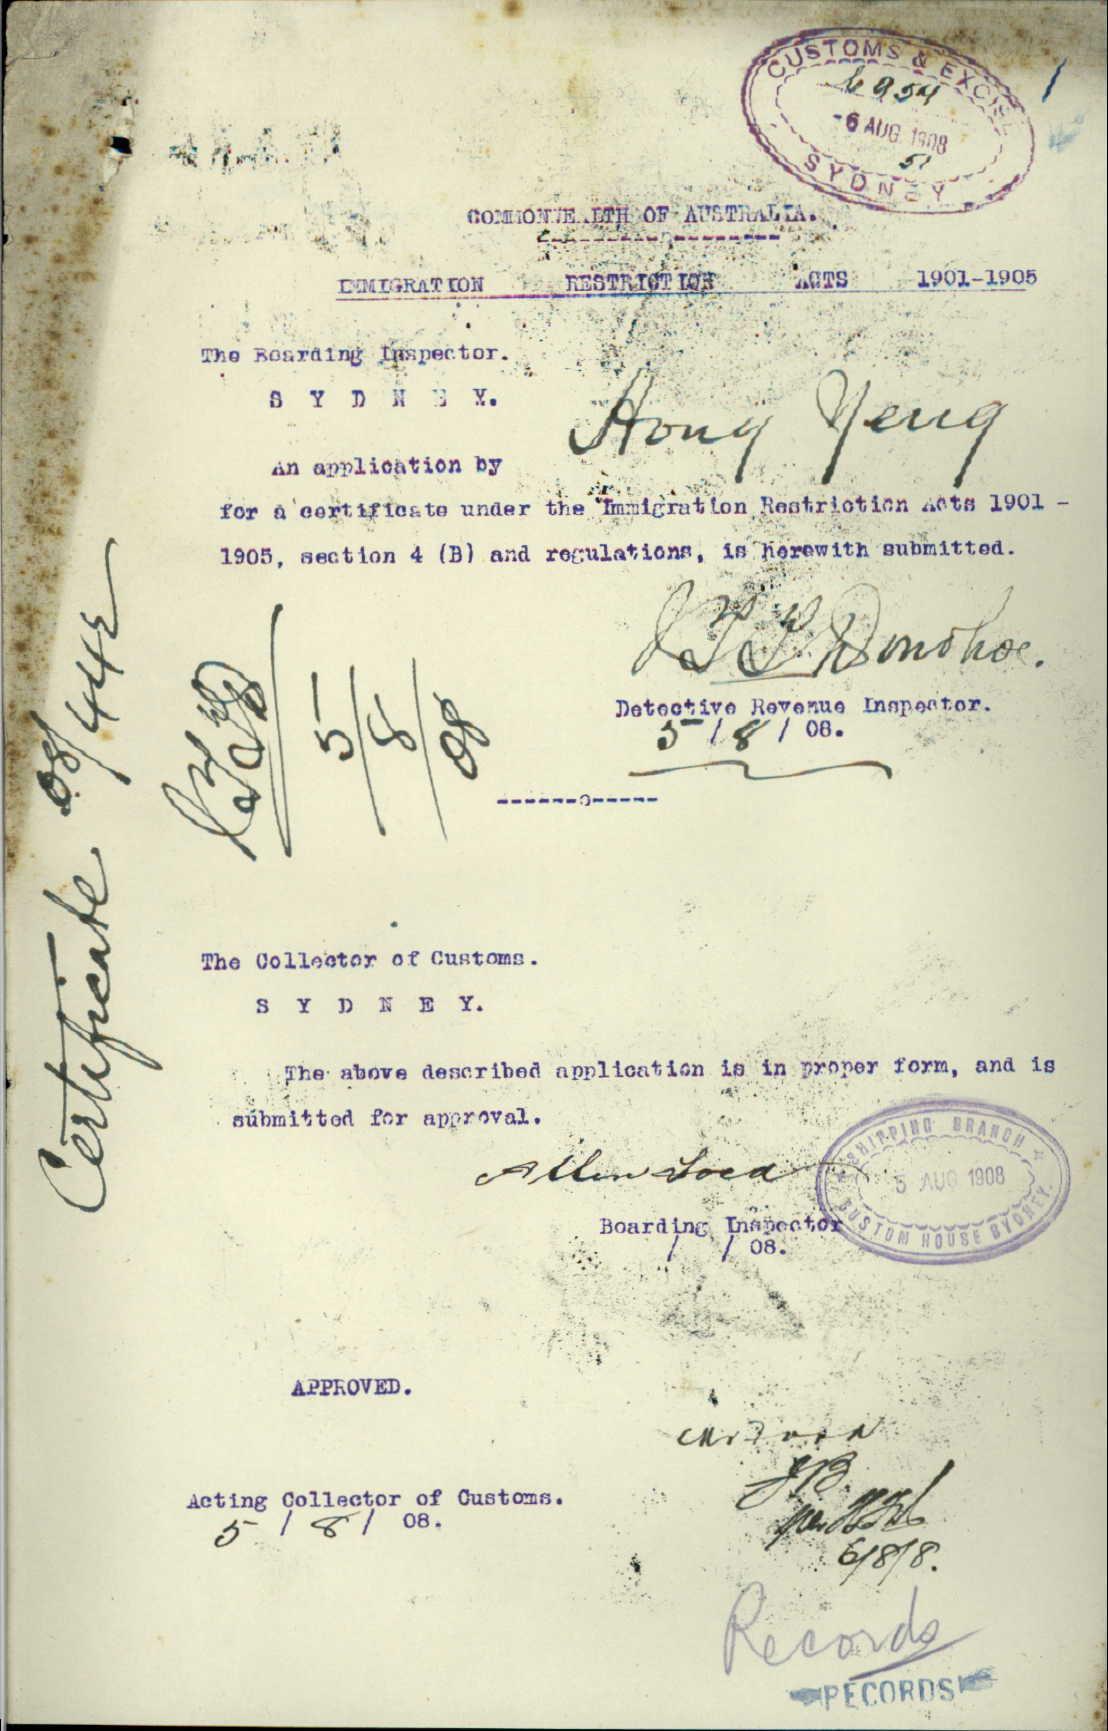 CUSTOMS & EXCISE
6954
-6 AUG 1908
51
SYDNEY
COMMONWEALTH OF AUSTRALIA.
IMMIGRATION RESTRICTION ACTS 1901-1905
The Boarding Inspector.
S Y D N E Y.
Hong Yeng
An application by
for a certificate under the Immigration Restriction Acts 1901 -
1905, section 4 (B) and regulations, is herewith submitted.
Donohoe.
Detective Revenue Inspector.
5 / 8 / 08.
-------o------
5/8/08
Certificate 08/442
The Collector of Customs.
S Y D N E Y.
The above described application is in proper form, and is
submitted for approval.
SHIPPING BRANCH
5 AUG 1908
CUSTOM HOUSE SYDNEY.
Boarding Inspector
/ / 08.
APPROVED.
Acting Collector of Customs.
5 / 8 / 08.
6/8/8.
Records
RECORDS